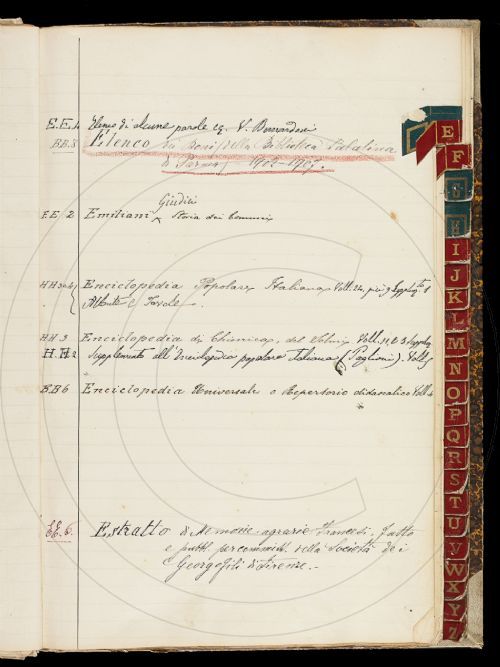 E.E.4 Elenco di alcune parole V. Bernardoni
BB.8 Elenco dei Doni della Biblioteca Palatina
di Parma 1902-1907.
Giudici
F.E 2 Emiliani Storia dei Comuni
H.H 3 Enciclopedia Popolare Italiana Voll. 12 più 9
e Tavole.
H.H.3 Enciclopedia di Chimica, del Selmi Voll. 11, e 3
H.H.2 Supplemento all'Enciclopedia popolare Italiana (Paglioni). Voll. 5
B.B 6 Enciclopedia Universale o Repertorio Voll. 4
EE. 6. Estratto di Memorie agrarie Francesi. fatto
e pubbl. per commiss. della Società dei
Georgofili di Firenze.-
E
F
G
H
I
J
K
L
M
N
O
P
Q
R
S
T
U
V
W
X
Y
Z